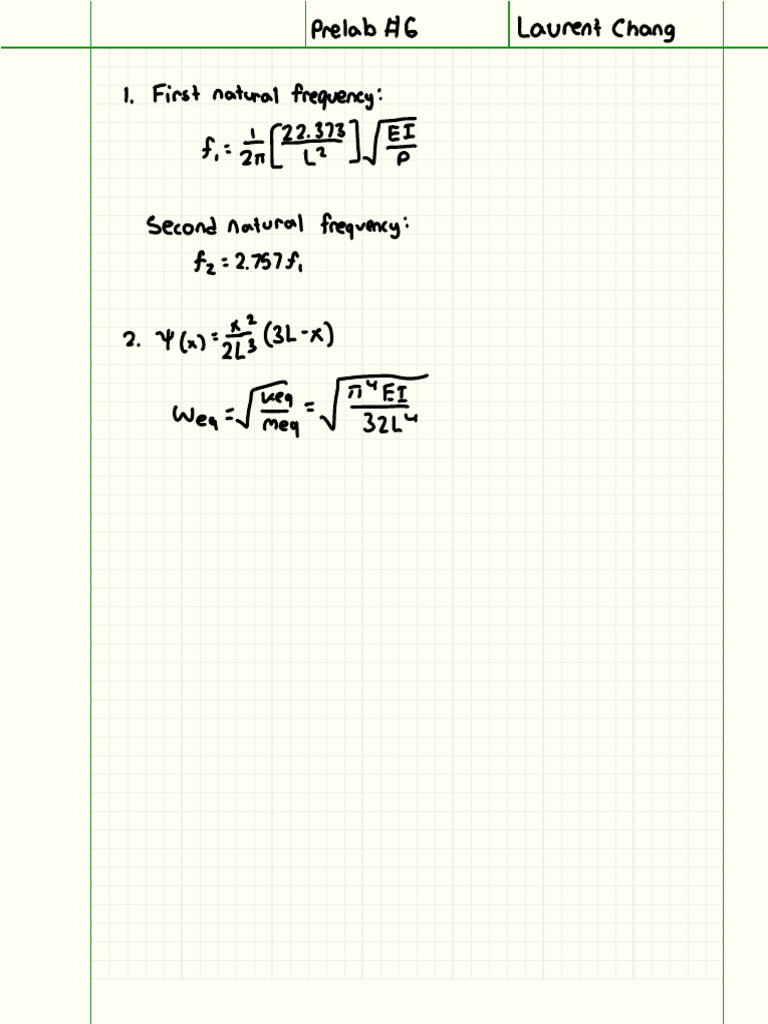 Prelab #6
Laurent Chang
1. First natural frequency:
f₁ = 1/2π [22.373/L²] √(EI/ρ)
Second natural frequency:
f₂ = 2.757f₁
2. Ψ(x) = x²/2L³ (3L-x)
ωeq = √(keq/meq) = √(π⁴EI/32L⁴)